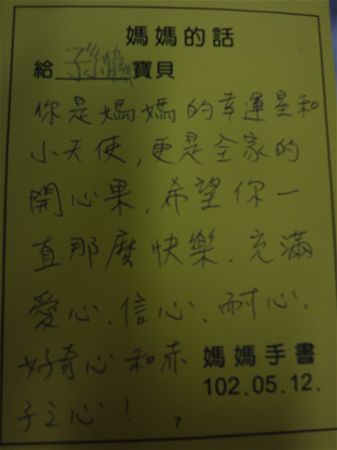 媽媽的話
給 寶貝
你是媽媽的幸運星和
小天使,更是全家的
開心果,希望你一
直那麼快樂、充滿
愛心、信心、耐心、
好奇心和赤
子之心!
媽媽手書
102.05.12.
7